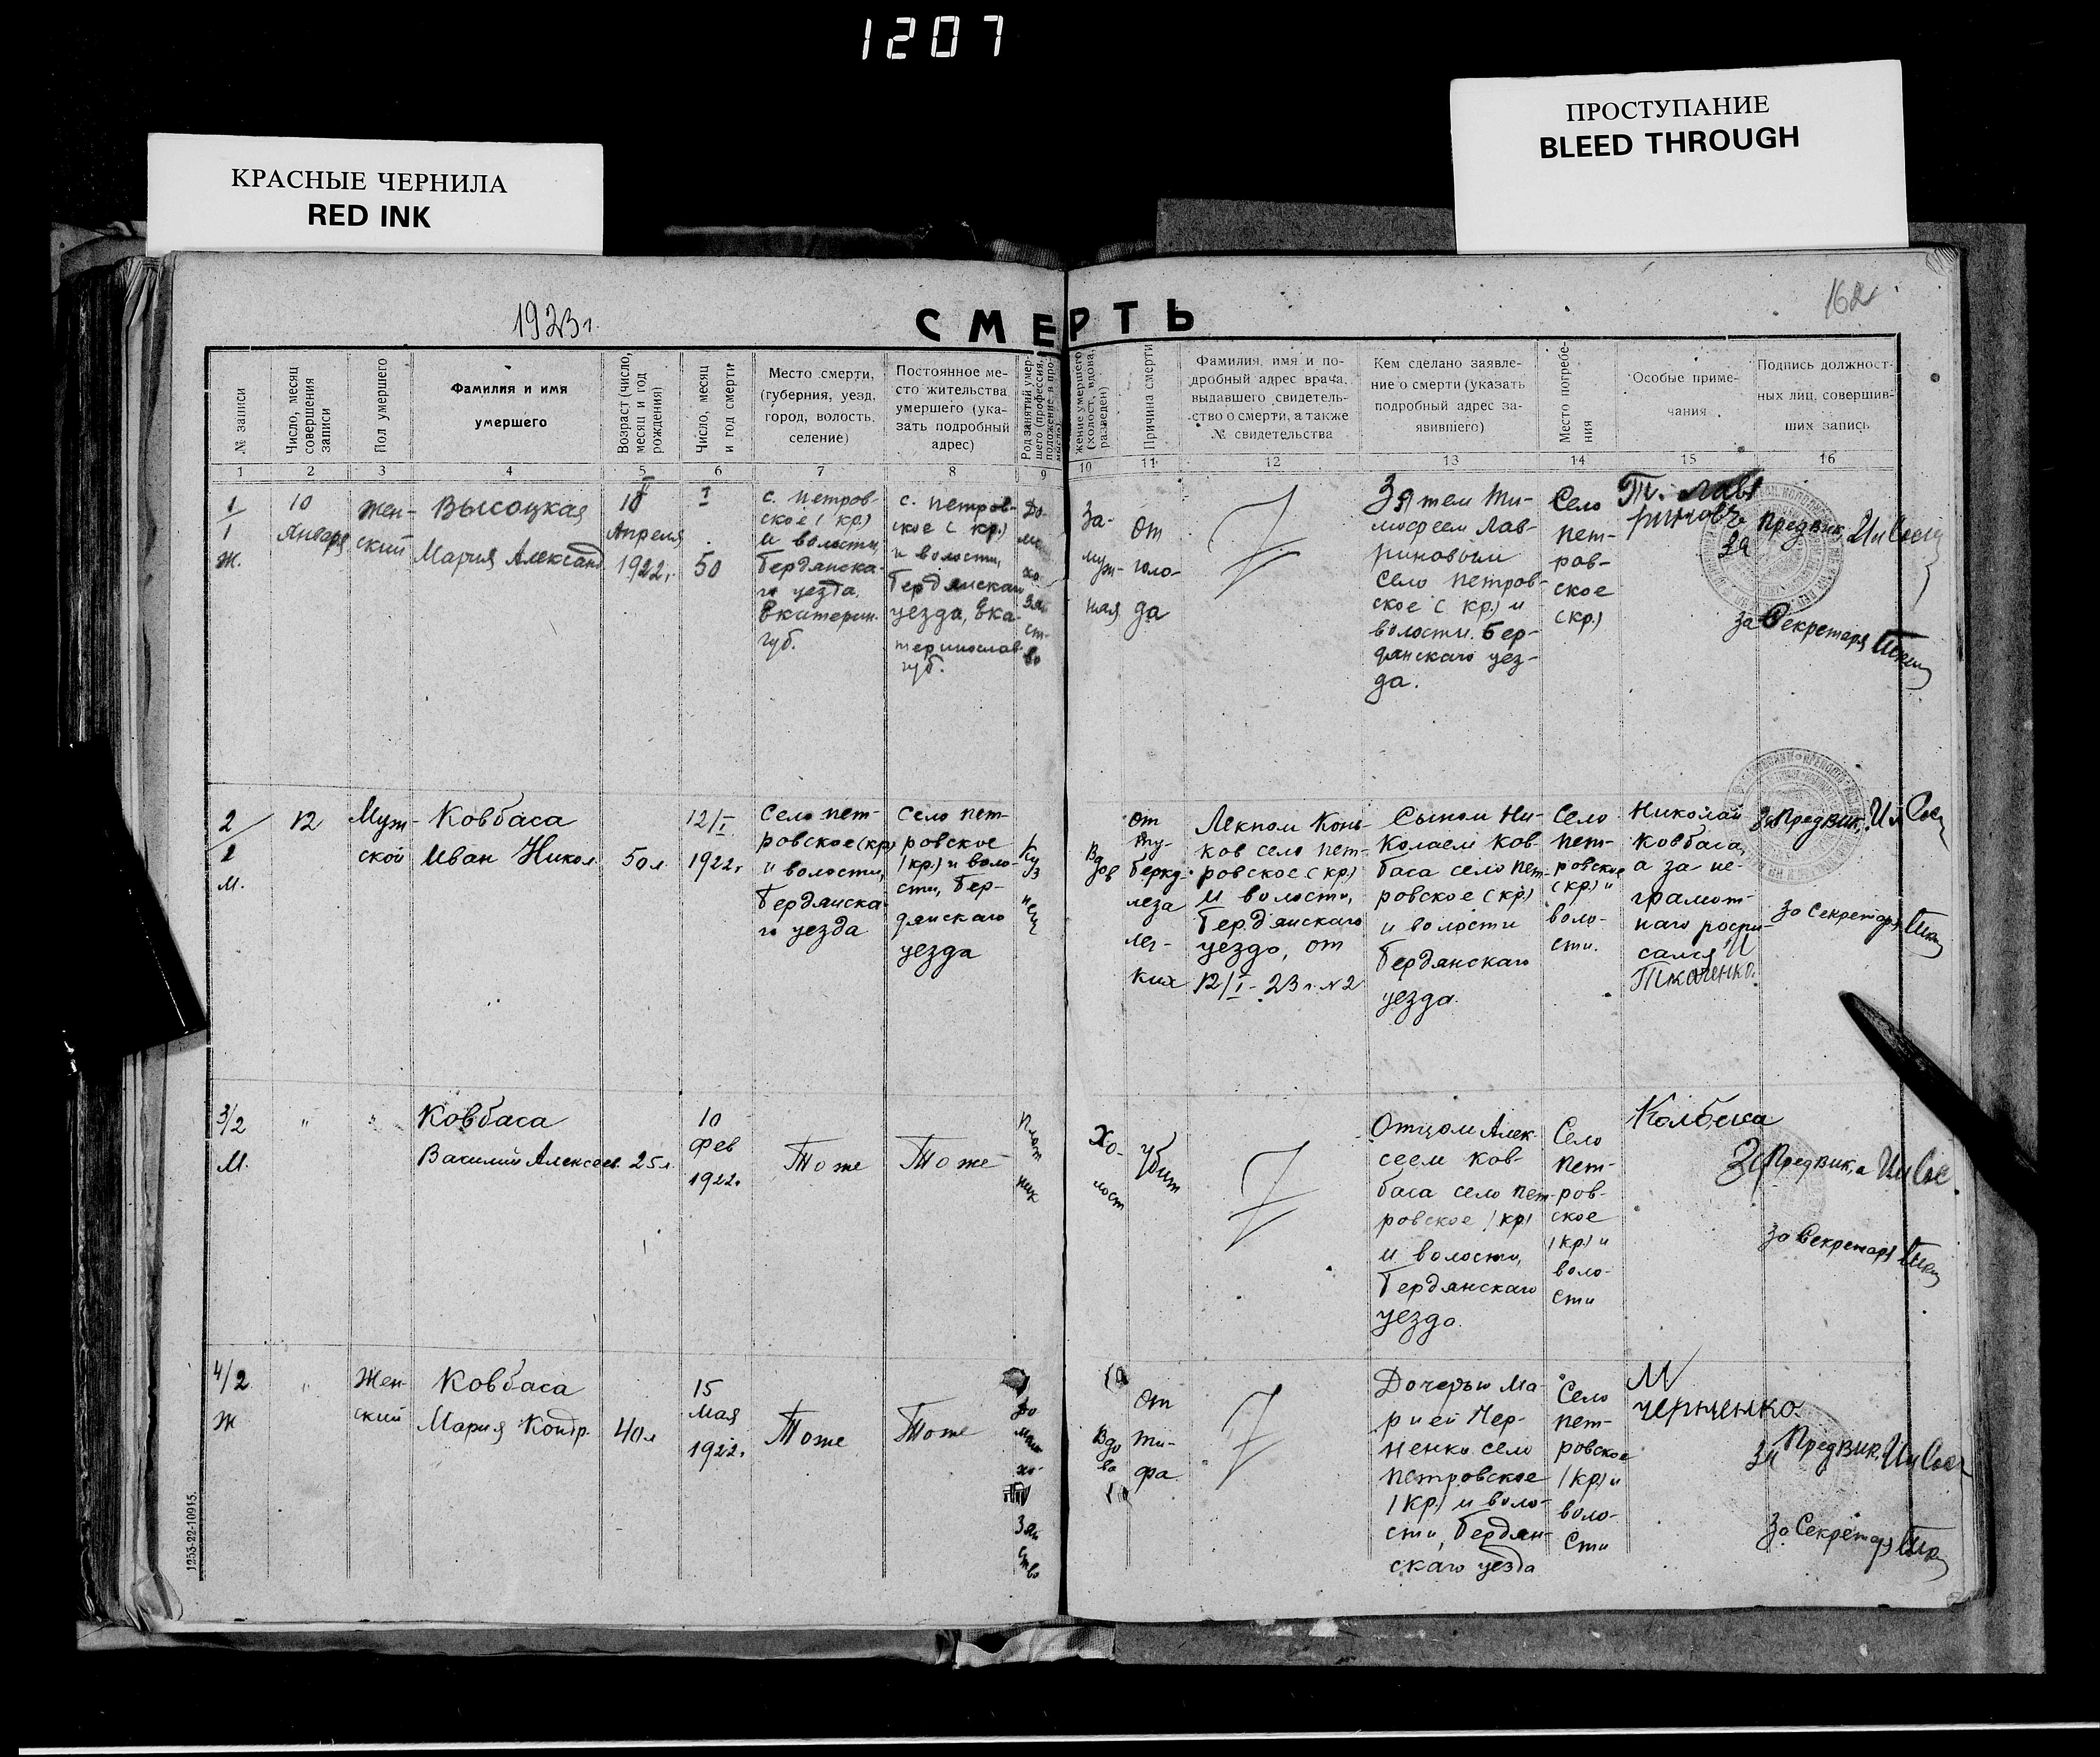 1207
КРАСНЫЕ ЧЕРНИЛА
RED INK
ПРОСТУПАНИЕ
BLEED THROUGH
1923 г.
162
СМЕРТЬ
№ записи
Число, месяц совершения записи
Пол умершего
Фамилия и имя
умершего
Возраст (число, месяц и год рождения)
Число, месяц и год смерти
Место смерти,
(губерния, уезд,
город, волость,
селение)
Постоянное ме-
сто жительства
умершего (ука-
зать подробный
адрес)
Род занятий умер-
шего (профессия,
положение в про-
жение умершего
(холост, вдова,
разведен)
Причина смерти
Фамилия, имя и по-
дробный адрес врача,
выдавшего свидетель-
ство о смерти, а также
№ свидетельства
Кем сделано заявле-
ние о смерти (указать
подробный адрес за-
явившего)
Место погребе-
ния
Особые приме-
чания
Подпись должност-
ных лиц, совершив-
ших запись
1 2 3 4 5 6 7 8 9 10 11 12 13 14 15 16
1/1
Ж.
10
Января
Жен-
ский
Высоцкая
Мария Александ
18
Апреля
1922 г.
50
с. Петров-
ское (кр.)
и волости,
Бердянска-
го уезда,
Екатерин.
губ.
с. Петров-
ское (кр.)
и волости,
Бердянскаго
уезда, Ека-
теринослав
губ.
До-
ма
хо
зяй
ст-
во
За-
муж-
ная
от
голо-
да
Зятем Ти-
мофеем Лав-
риновым
село Петров-
ское (кр.) и
волости. Бер-
дянскаго уез-
да.
Село
Пет-
ров-
ское
(кр.)
Т. Лав
ринов
За Предвик.
за Секретаря
2/1
М.
12
Муж-
ской
Ковбаса
Иван Никол.
50 л
12/I
1922 г
Село Пет-
ровское (кр)
и волости,
Бердянска-
го уезда
Село Пет-
ровское
(кр.) и воло-
сти, Бер-
дянскаго
уезда
Куз
нец
Вдов
от
ту-
берку-
леза
лег-
ких
Лекпом Конь-
ков село Пет-
ровское (кр.)
и волости,
Бердянскаго
уезда, от
12/I - 23 г. № 2
Сыном Ни-
колаем Ков-
баса село Пет-
ровское (кр)
и волости
Бердянскаго
уезда.
Село
Пет-
ровское
(кр.) и
воло-
сти.
Николай
Ковбаса,
а за не-
грамот-
наго роспи-
сался И
Ткаченко.
За Предвик.
За Секретаря
3/2
М.
"
"
Ковбаса
Василий Алексеев.
25 л.
10
Фев
1922 г
Тоже
Тоже
Плот
ник
Хо-
лост
Убит
Отцом Алек-
сеем Ков-
баса село Пет-
ровское (кр)
и волости,
Бердянскаго
уезда.
Село
Пет-
ров-
ское
(кр.) и
воло-
сти
Колбаса
За Предвик,а
За Секретаря
4/2
Ж
"
Жен-
ский
Ковбаса
Мария Кондр.
40 л
15
Мая
1922 г.
Тоже
Тоже
До
маш
хо-
Зяй
ство
Вдо
ва
от
ти-
фа
Дочерью Ма-
рией Чер-
ненко село
Петровское
(кр.) и воло-
сти, Бердян-
скаго уезда
Село
Пет-
ровское
(кр.) и
воло-
сти
М
Черненко.
За Предвик,
За Секретаря
1253-22-10915.